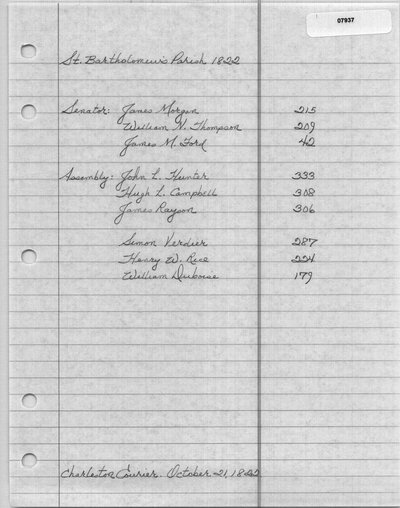 07937
St. Bartholomew's Parish 1822
Senator: James Morgan 215
William N. Thompson 209
James M. Ford 42
Assembly: John L. Hunter 333
Hugh L. Campbell 308
James Rayson 306
Simon Verdier 287
Henry W. Rice 224
William Duboise 179
Charleston Courier. October 21, 1822